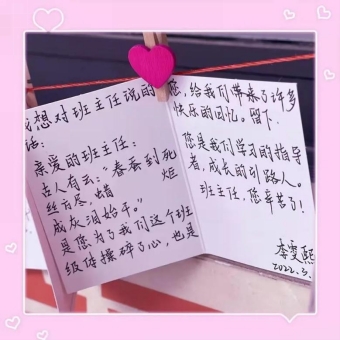 我想对班主任说的
话:
亲爱的班主任:
古人有云:“春蚕到死
丝方尽,蜡炬
成灰泪始干。”
是您为了我们这个班
级体操碎了心,也是
您,给我们带来了许多
快乐的回忆。留下.
您是我们学习的指导
者,成长的引路人。
班主任,您辛苦了!
李雯熙
2022.3.